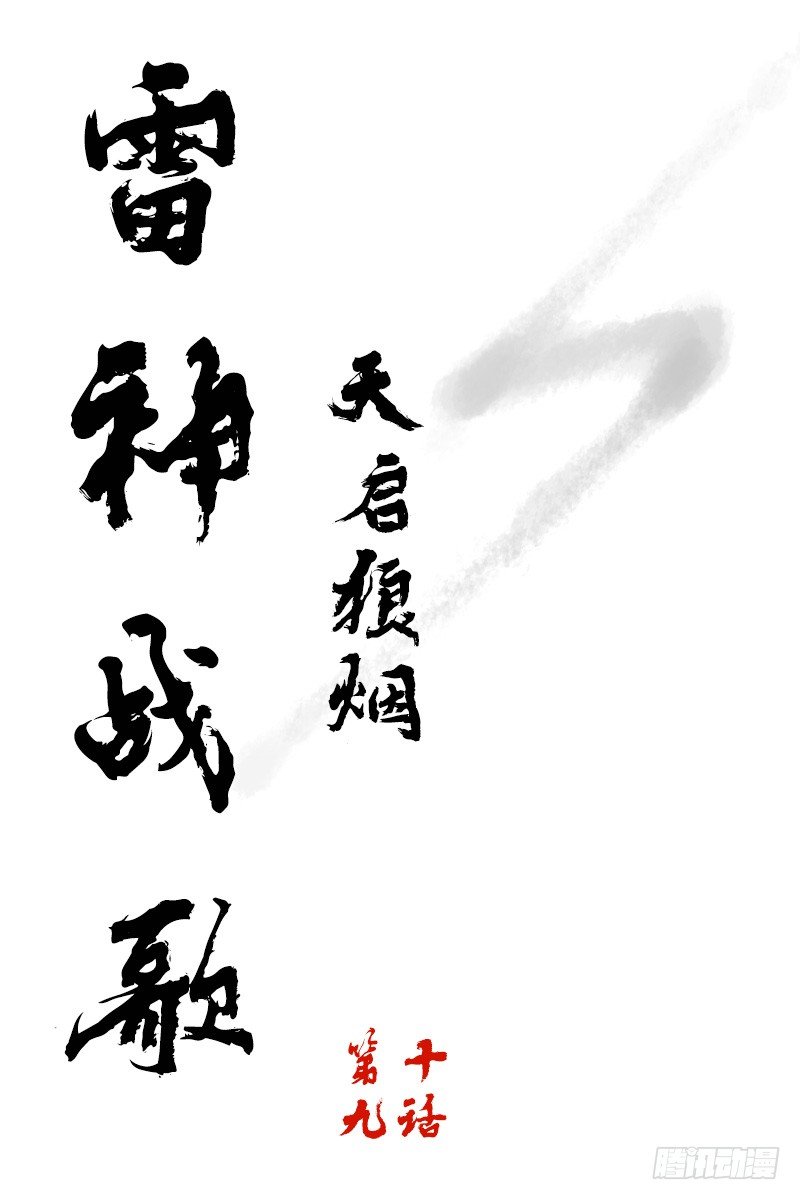 雷神战歌
天启狼烟
第十
九话
腾讯动漫